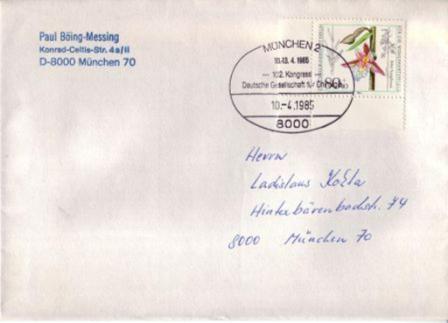 Paul Böing-Messing
Konrad-Celtis-Str. 4a/II
D-8000 München 70
MÜNCHEN 2
10.-13. 4. 1985
102. Kongress
Deutsche Gesellschaft für Chirurgie
10.-4.1985
8000
80
Herrn
Ladislaus
Hinterbärenbadstr. 74
8000 München 70